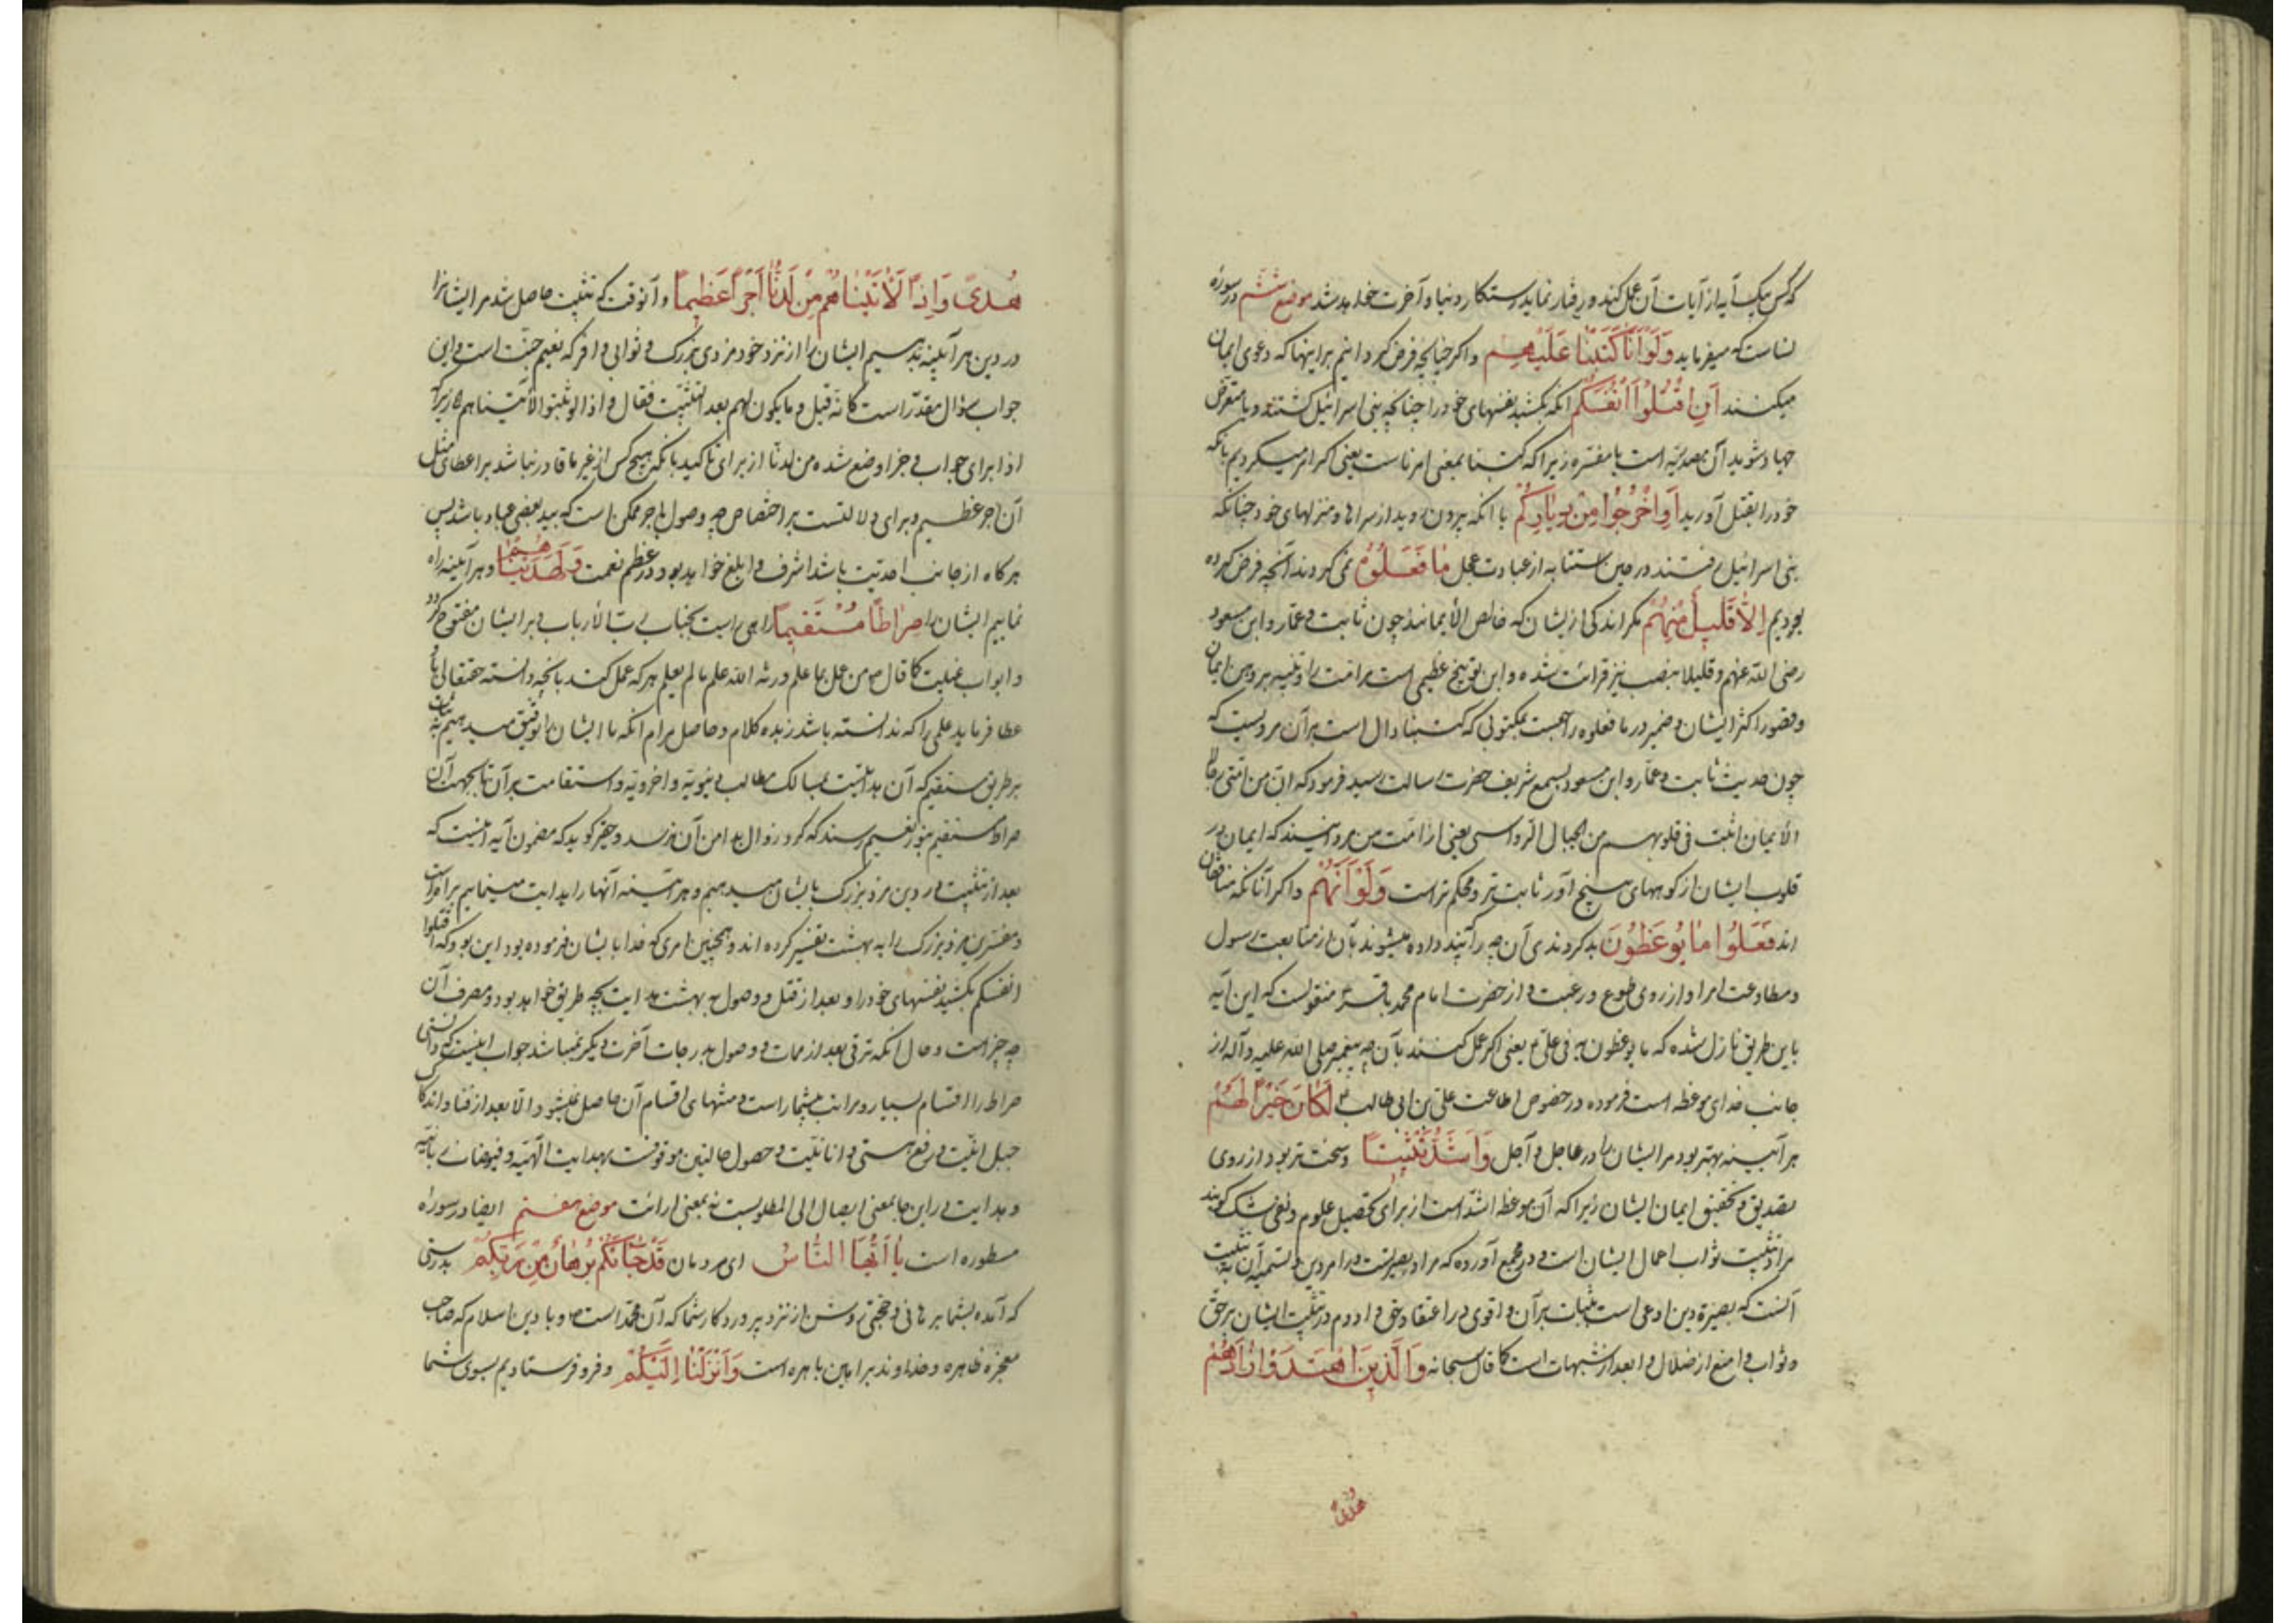 که کس بیک آیه از آیات آن عمل کند و رفتار نماید رستکار دنیا و آخرت خواهد شد موضع ششم در سوره
نساست که میفرماید وَلَوْ اَنَّا کَتَبْنَا عَلَیْهِم و اکر چنانچه فرض کردانیم بر اینها که دعوی ایمان
میکنند اَنِ اقْتُلُوْا اَنْفُسَکُمْ آنکه بکشید نفسهای خود را چنانکه بنی اسرائیل کشتند و یا متعرض
جهاد شوید آن مصدریه است یا مفسره زیرا که کتبنا بمعنی امرناست یعنی اکر امر میکردیم بانکه
خود را بقتل آورید اَوِ اخْرُجُوْا مِنْ دِیَارِکُمْ یا آنکه بیرون روید از سراها و منزلهای خود چنانکه
بنی اسرائیل رفتند در حین استتابه از عبادت عجل مَا فَعَلُوْهُ نمی کردند آنچه فرض کرده
بودیم اِلَّا قَلِیْلٌ مِنْهُمْ مکر اندکی از ایشان که خالص الایمانند چون ثابت و عمار و ابن مسعود
رضی الله عنهم و قلیلا بنصب نیز قرائت شده و این توبیخ عظیمی است مر امت را و تنبیه بر وهن ایمان
و قصور اکثر ایشان و ضمیر در ما فعلوه راجعست بمکتوبی که کتبنا دال است بر آن مرویست که
چون حدیث ثابت و عمار و ابن مسعود بسمع شریف حضرت رسالت رسید فرمود که ان من امتی رجالا
الایمان اثبت فی قلوبهم من الجبال الرواسی یعنی از امت من مردانیند که ایمان در
قلوب ایشان از کوههای بیخ آور ثابت تر و محکم تر است وَلَوْ اَنَّهُمْ و اکر آنانکه منافقان
اند فَعَلُوْا مَا یُوْعَظُوْنَ بِهِ کردندی آن چه را که پند داده میشوند بآن از متابعت رسول
و مطاوعت امر او از روی طوع و رغبت و از حضرت امام محمد باقر منقولست که این آیه
باین طریق نازل شده که ما یوعظون به فی علی یعنی اکر عمل کنند بآن چه پیغمبر صلی الله علیه و آله از
جانب خدای موعظه است فرموده در خصوص اطاعت علی بن ابی طالب لَکَانَ خَیْرًا لَهُمْ
هر آینه بهتر بود مر ایشان را در عاجل و آجل وَاَشَدَّ تَثْبِیْتًا و سخت تر بود از روی
تصدیق و تحقیق ایمان ایشان زیرا که آن موعظه اشد است از برای تحصیل علوم و نفی شک کویند
مراد تثبیت ثواب اعمال ایشان است و در مجمع آورده که مراد بصیرتست در امر دین و تسمیه آن به تثبیت
آنست که بصیرة دین ادعی است بثبات بر آن و اقوی در اعتقاد حق و ادوم در تثبیت ایشان بر حق
و ثواب و امنع از ضلال و ابعد از شبهات است کما قال سبحانه وَالَّذِیْنَ اهْتَدَوْا زَادَهُمْ
هُدًی
هُدًی وَاِذًا لَاٰتَیْنَاهُمْ مِنْ لَدُنَّا اَجْرًا عَظِیْمًا و آنوقت که تثبیت حاصل شد مر ایشانرا
در دین هر آیینه بدهیم ایشان را از نزد خود مزدی بزرک و ثوابی وافر که نعیم جنت است و این
جواب سؤال مقدر است کانه قیل و ما یکون لهم بعد التثبیت فقال و اذا لو ثبتوا لاتیناهم زیرا که
اذا برای جواب و جزا وضع شده من لدنا از برای تاکید بانکه هیچ کس از غیر ما قادر نباشد بر اعطای مثل
آن اجر عظیم و برای دلالتست بر اختصاص چه وصول باجر ممکن است که بید بعضی عباد باشد پس
هر کاه از جانب احدیت باشد اشرف و ابلغ خواهد بود و در عظم نعمت وَلَهَدَیْنَاهُمْ و هر آیینه راه
نماییم ایشان را صِرَاطًا مُسْتَقِیْمًا راهی راست بجناب رب الارباب و بر ایشان مفتوح کردد
و ابواب غیبت کما قال من عمل بما علم ورثه الله علم ما لم یعلم هر که عمل کند بانچه دانسته حقتعالی باو
عطا فرماید علمی را که ندانسته باشد زبده کلام و حاصل مرام آنکه ما ایشان را توفیق میدهیم به ثبات
بر طریق مستقیم که آن هدایتست بمسالک مطالب دنیویه و اخرویه و استقامت بر آن تا بجهت آن
صراط مستقیم بنور نعیم رسند که کرد زوال بدامن آن نرسد و حقیر کوید که مضمون آیه اینست که
بعد از تثبیت در دین مزد بزرک بایشان میدهیم و هر آیینه آنها را هدایت مینماییم براه راست
و مفسرین مزد بزرک را به بهشت تفسیر کرده اند و همچنین امری که خدا بایشان فرموده بود این بود که اقتلوا
انفسکم بکشید نفسهای خود را و بعد از قتل و وصول به بهشت هدایت بچه طریق خواهد بود و مصرف آن
چه چیز است و حال آنکه ترقی بعد از ممات و وصول بدرجات آخرت دیکر نمیباشد جواب اینست که دانستی
صراط را اقسام بسیار و مراتب بیشمار است و منتهای اقسام آن حاصل نمیشود الا بعد از فنا و اندکاک
جبل انیت و رفع هستی و انانیت و حصول حالتین موقوفست بهدایت الهیه و فیوضات ربانیه
و هدایت در این جا بمعنی ایصال الی المطلوبست نه بمعنی ارائت موضع هفتم ایضا در سوره
مسطوره است یَا اَیُّهَا النَّاسُ ای مردمان قَدْ جَآءَکُمْ بُرْهَانٌ مِنْ رَبِّکُمْ بدرستی
که آمده بشما برهانی و حجتی روشن از نزد پروردکار شما که آن محمد است و یا دین اسلام که صاحب
معجزه ظاهره و خداوند براهین باهره است وَاَنْزَلْنَا اِلَیْکُمْ و فرو فرستادیم بسوی شما